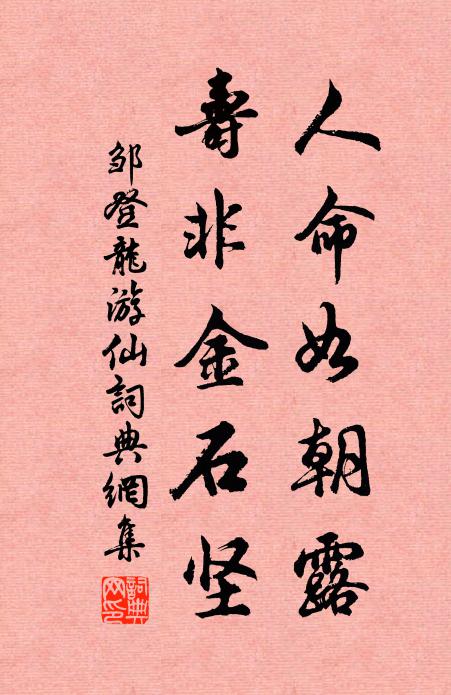 人命如朝露
壽非金石坚
邹登龍游仙詞典網集
詞典网印